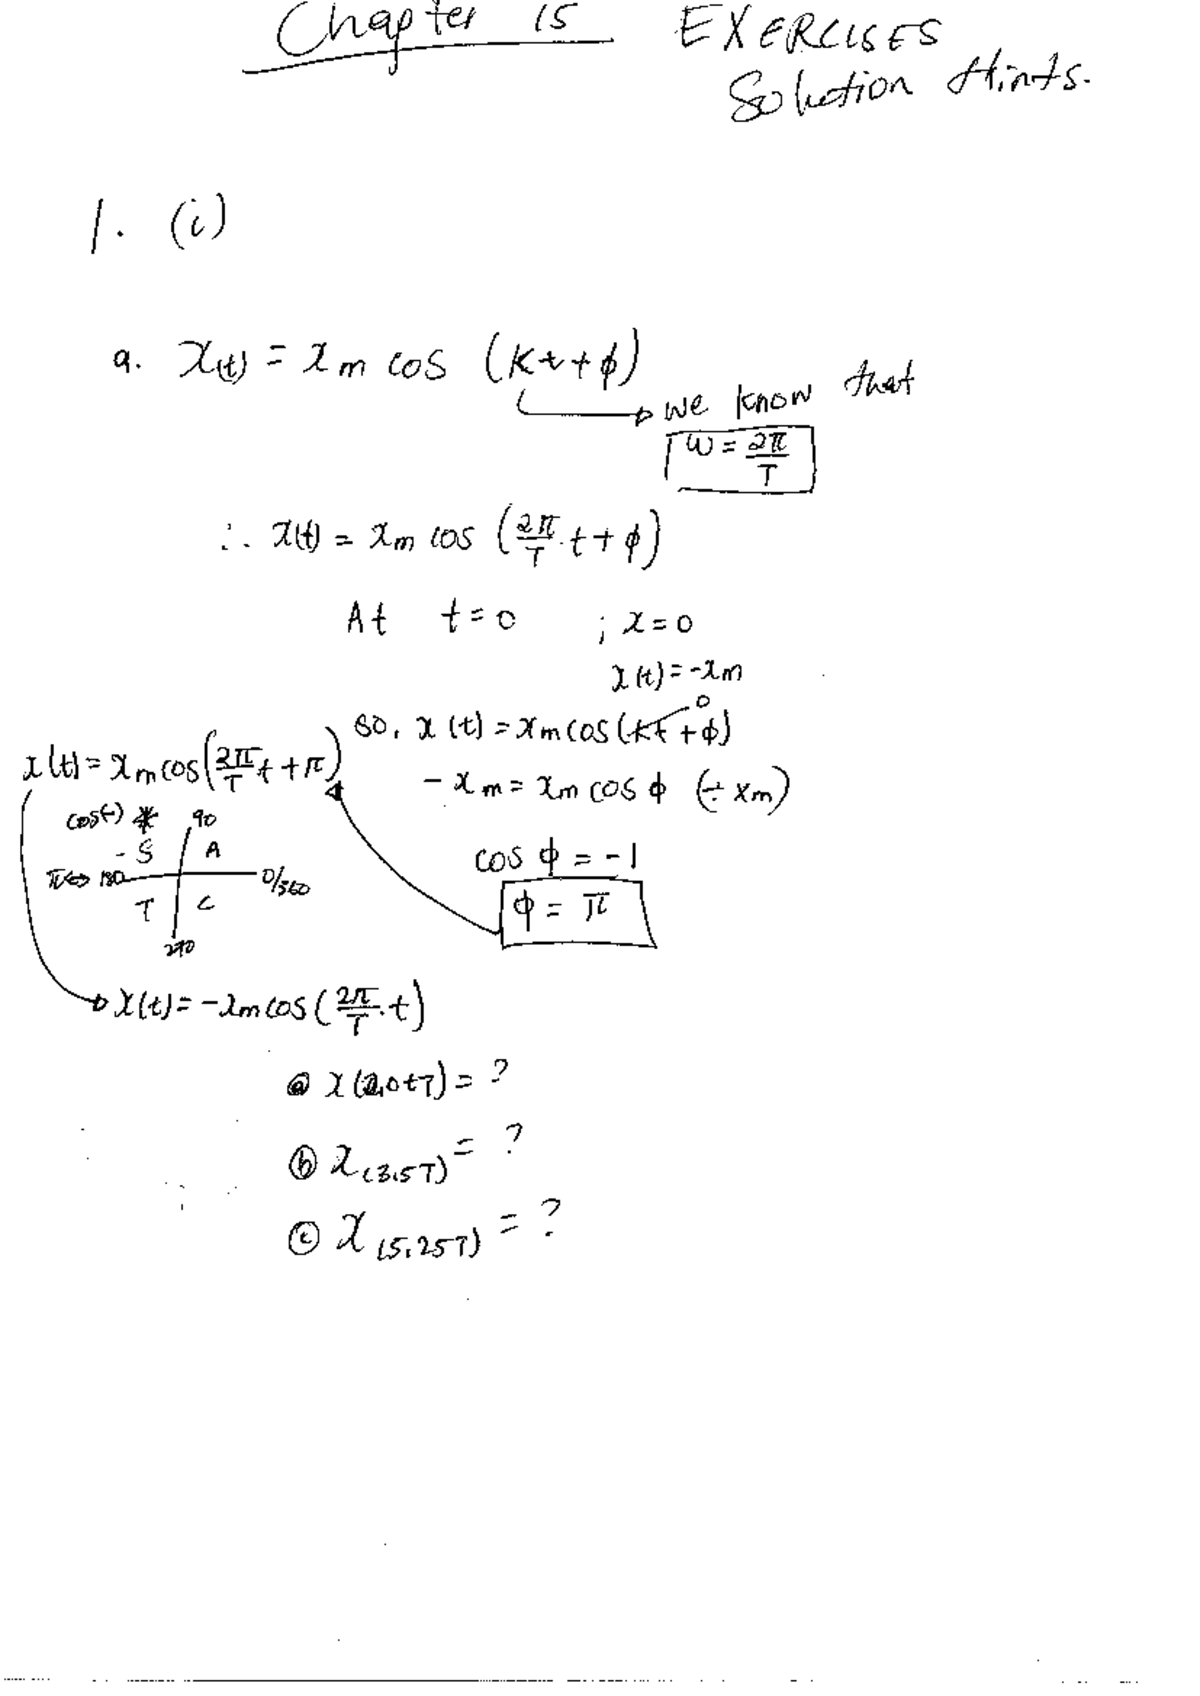 Chapter 15 EXERCISES
Solution Hints.
1. (i)
a. x(t) = xm cos (kt + φ)
we know that
ω = 2π/T
∴ x(t) = xm cos (2π/T · t + φ)
At t = 0 ; x = 0
x(t) = -xm
so, x(t) = xm cos (kt + φ)
0
x(t) = xm cos (2π/T t + π)
-xm = xm cos φ (÷ xm)
cos(-) * 90
- S A
π ⇔ 180 0/360
T C
270
cos φ = -1
φ = π
x(t) = -xm cos (2π/T · t)
ⓐ x(2,0tT) = ?
ⓑ x(3,5T) = ?
ⓒ x(5,25T) = ?